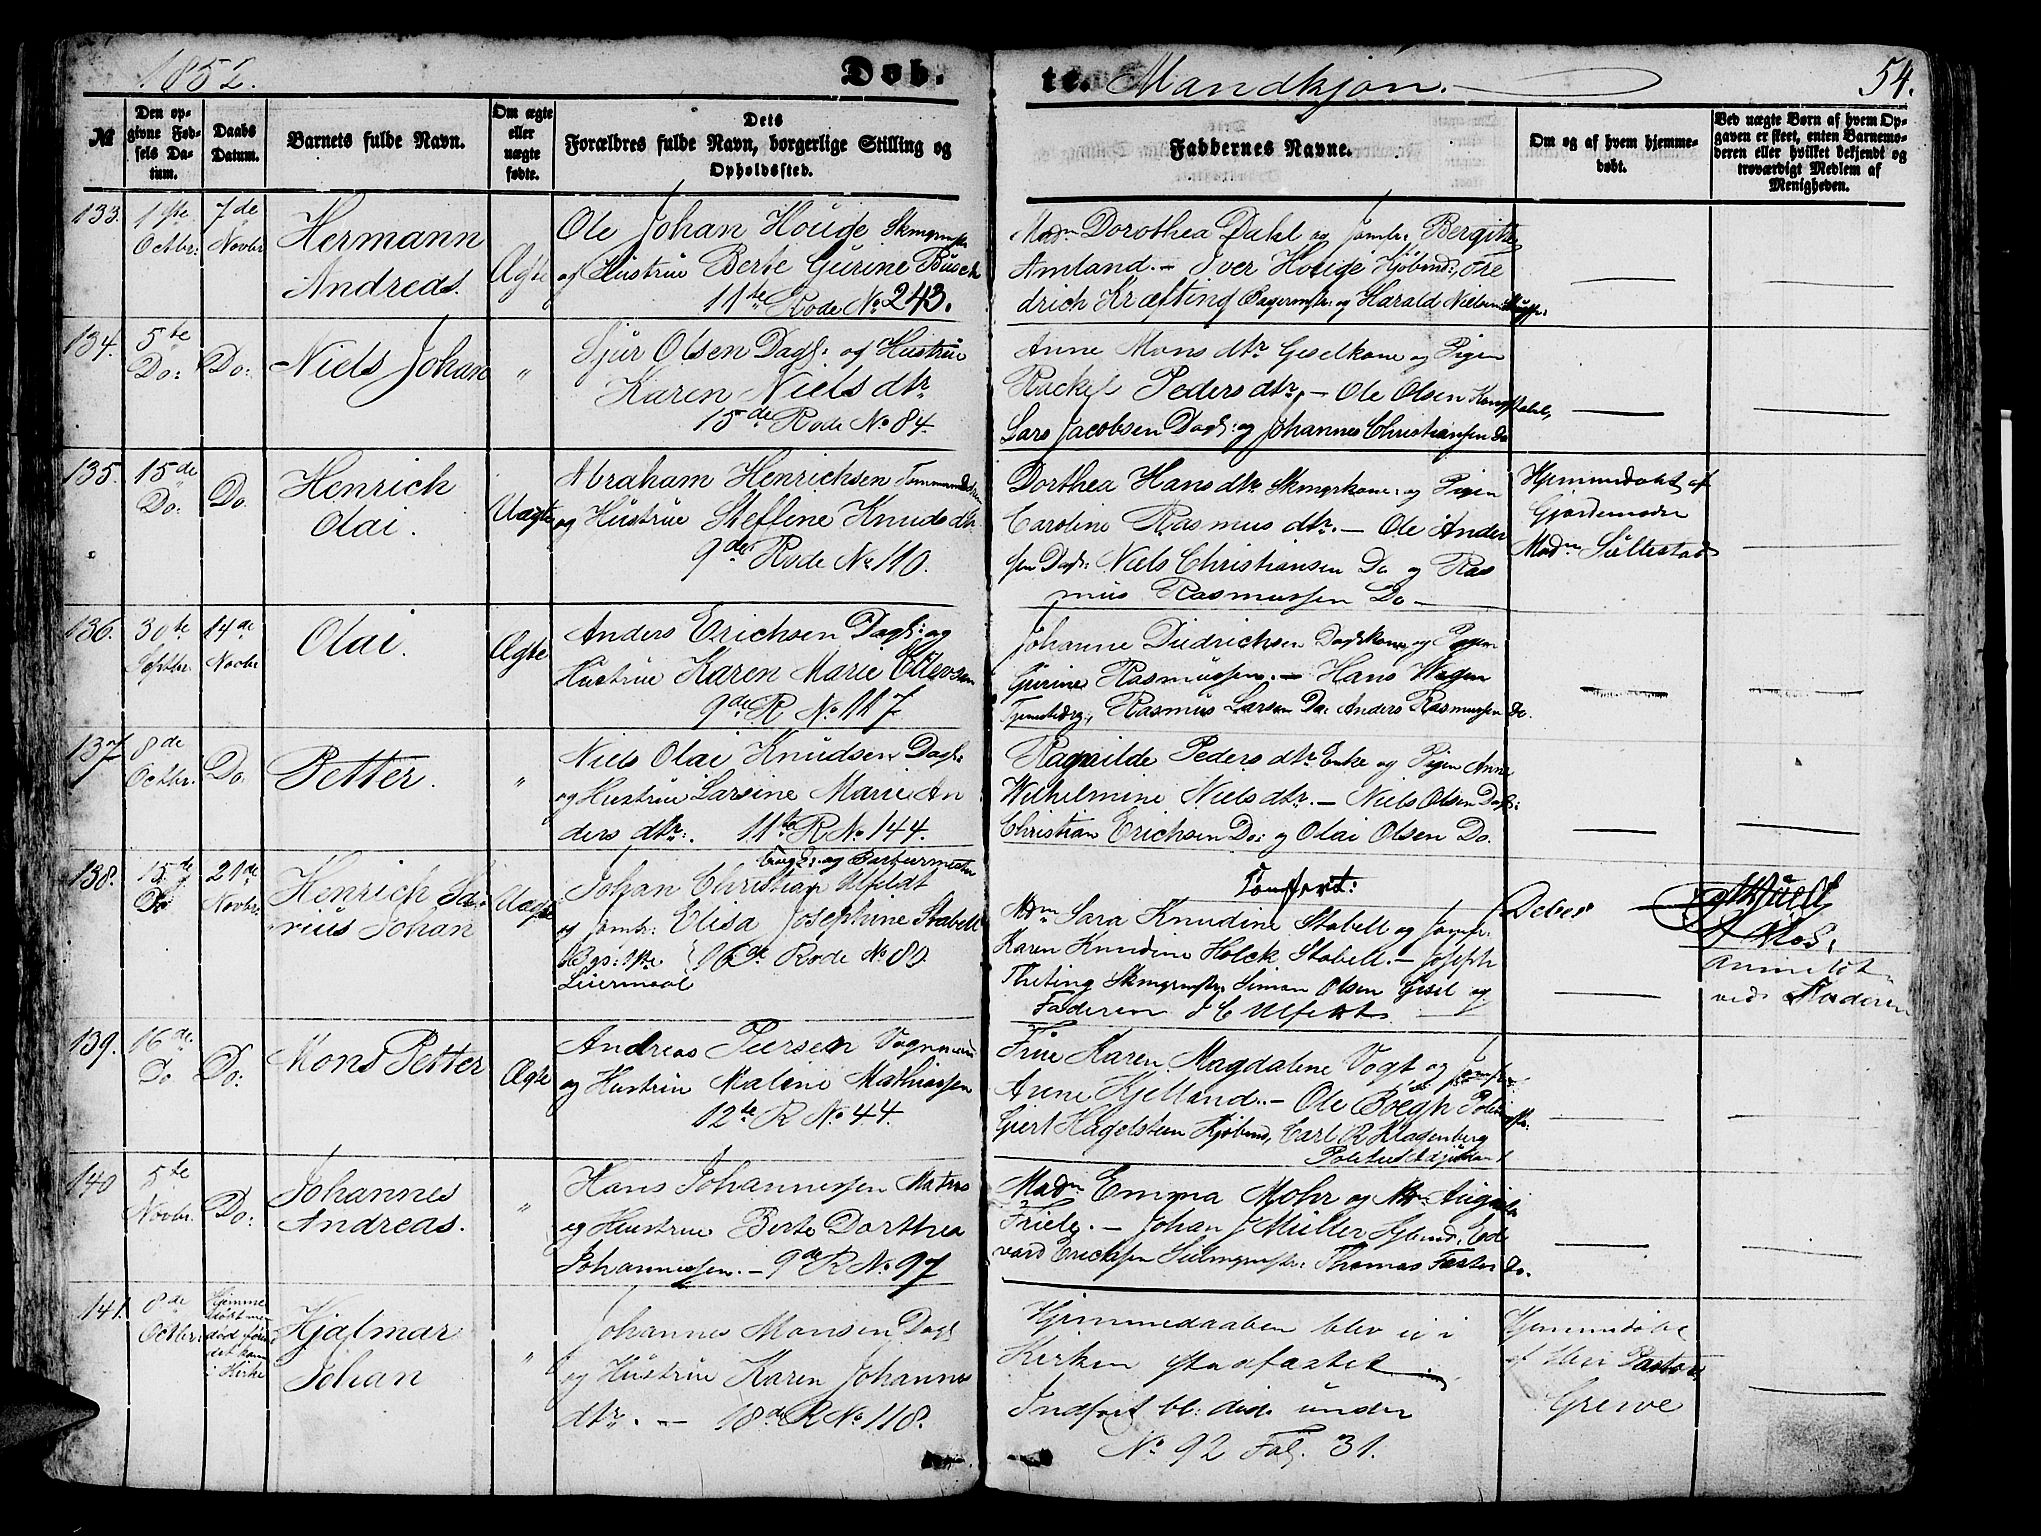 1852.
Døb.
te. Mandkjøn.
54.
№
Den op-
givne Fød-
sels Da-
tum.
Daabs
Datum.
Barnets fulde Navn.
Om ægte
eller
uægte
fødte.
Dets
Forældres fulde Navn, borgerlige Stilling og
Opholdssted.
Faddernes Navne.
Om og af hvem hjemme-
døbt.
Ved uægte Børn af hvem Op-
gaven er skeet, enten Barnemo-
deren eller hvilket bekjendt og
troværdigt Medlem af
Menigheden.
133.
1ste
Octbr:
7de
Novbr
Hermann
Andreas.
Ægte
Ole Johan Houge
og Hustrue Berte Gurine Busch
11te Rode No 243.
Madm Dorothea Dahl og Jomfr: Bergitte
Amland. – Iver Houge Kjøbmd:, Fre
drich Kræfting og Harald Nielsen
134.
5te
Do:
Do:
Niels Johan
"
Sjur Olsen Dagl: og Hustrue
Karen Niels dtr
15de Rode No 84.
Anne Mons dtr Geselkone og Pigen
Rackel Peders dtr, – Ole Olsen
Lars Jacobsen Dagl: og Johannes Christiansen Do
135.
15de
Do:
Do.
Henrich
Olai.
Uægte
Abraham Henrichsen
og Hustrue Steffine Knuds dtr.
9de Rode No 110.
Dorthea Hans dtr og Pigen
Caroline Rasmus dtr. – Ole Ander
sen Dagl: Niels Christiansen Do og Ras
mus Rasmussen Do –
Hjemmedøbt af
Gjordemoder
Madm Sültestad
136.
30te
Septbr.
14de
Novbr
Olai.
Ægte
Anders Erichsen Dagl: og
Hustrue Karen Marie
9de R No 117
Johanne Didrichsen Daglkone og Pigen
Gurine Rasmussen. – Hans Wagen
Rasmus Larsen Do: Anders Rasmussen Do.
137
8de
Octbr.
Do.
Petter.
"
Niels Olai Knudsen Dagl:
og Hustrue Larsine Marie An
ders dtr: 11te R No 144.
Ragnilde Peders dtr Enke og Pigen Anne
Wilhelmine Niels dtr. – Niels Olsen Dagl:
Christian Erichsen Do: og Olai Olsen Do.
138.
15de
Do
21de
Novbr.
Henrich
rius Johan
Uægte
og
Johan Christian Ulfeldt
og Jomfr: Elisa Josephine Stabell
Begs: 1ste 16de Rode No 80
Leiermaal
Madm Sara Knudine Stabell og Jomfr:
Karen Knudine Holck Stabell. – Joseph
Thiting Simon Olsen Gesel og
Faderen J C Ulfeldt
Anmeldt
ved Moderen
139.
16de
Do
Do:
Mons Petter
Ægte
Andreas Peersen Vognmand
og Hustrue Maline Mathiassen
12te R No 44.
Frue Karen Magdalene Vogt og Jomfr:
Anne Kjelland. – Ole Bøegh
Giert Hagelsteen Kjøbmd, Carl R Kladenberg
140
5te
Novbr.
Do:
Johannes
Andreas.
"
Hans Johannessen Matros
og Hustrue Berte Dorthea
Johannessen. – 9de R No 97
Madm Emma Mohr og
Friele. – Johan J Müller Kjbmd, Ed
vard Erichsen Thomas Do.
141.
8de
Octbr:
Hjemme
døbt men
død førend
det kom
i Kirke
Hjalmar
Johan
"
Johannes Monsen Dagl
og Hustrue Karen Johannes
dtr. – 18de R No 118.
Hjemmedaaben blev ei i
Kirken stadfæstet.
Indført bl: døde under
No 92 Fol. 31.
Hjemmedøbt
af Herr Pastor
Greve